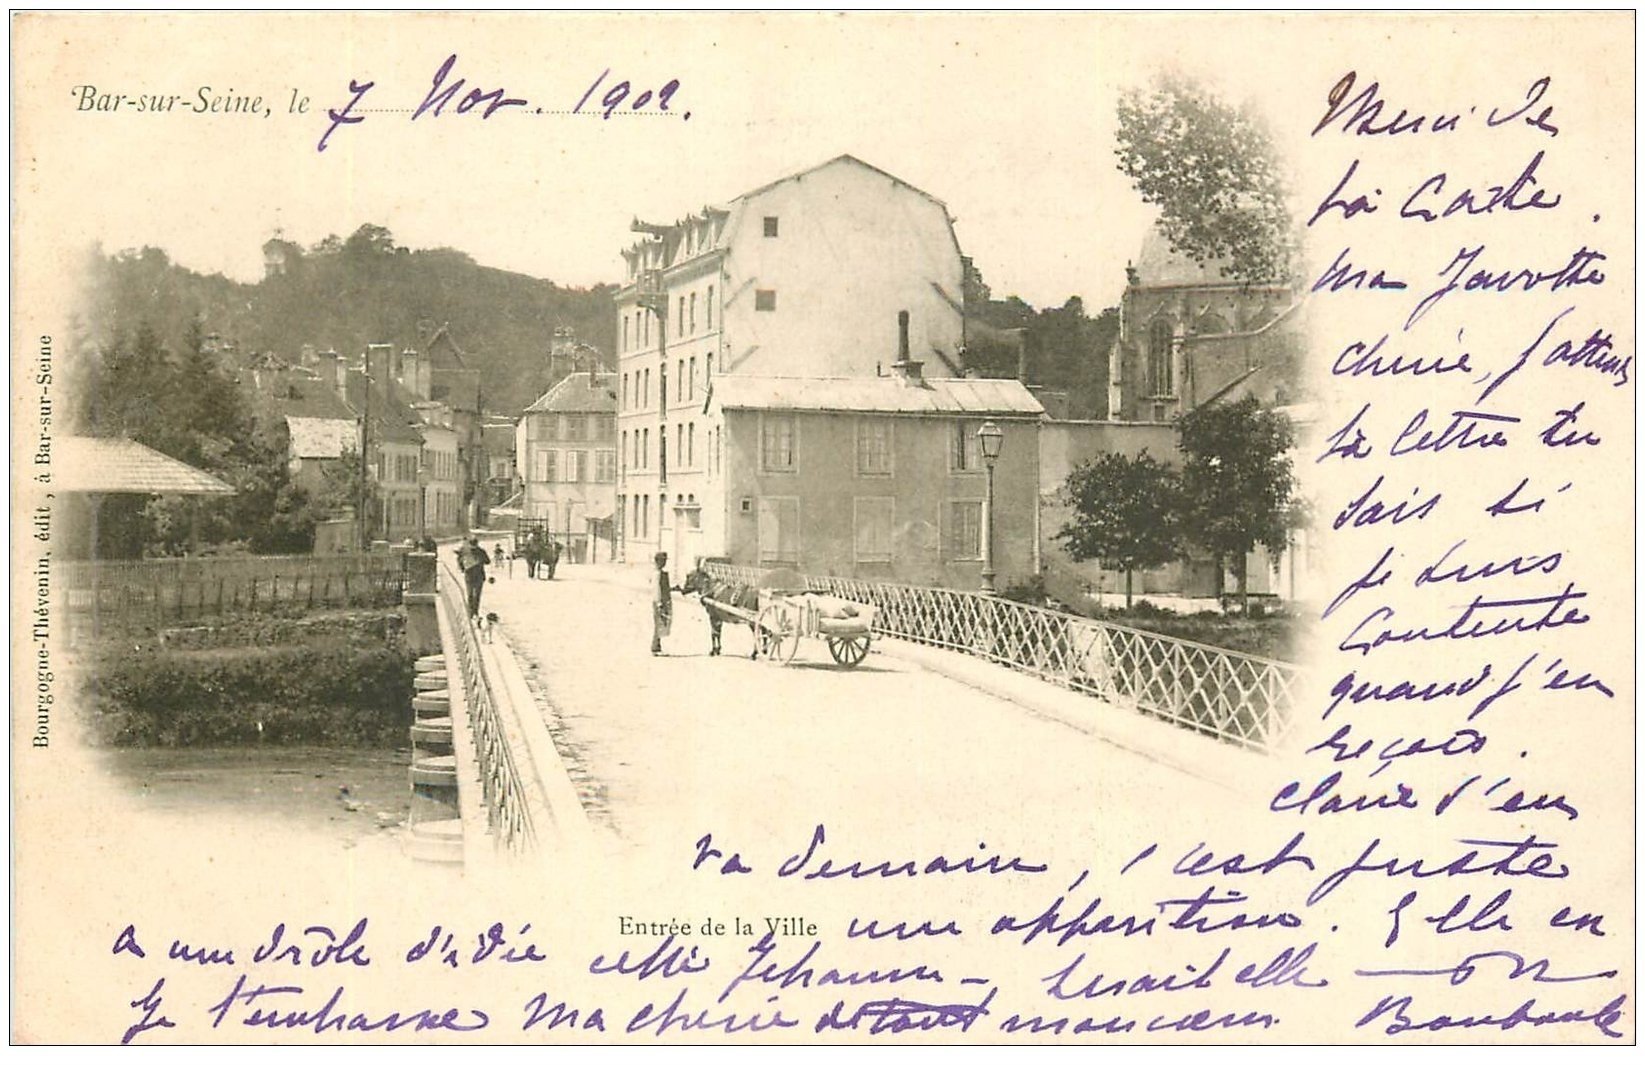 Bar-sur-Seine, le 7 Nov. 1902.
Merci de
ta Carte.
ma Javotte
cherie, j'attends
ta lettre tu
sais si
je suis
Contente
quand j'en
reçois.
Claire s'en
va demain, c'est juste
une apparition. Elle en
a une drôle d'idée cette Jehanne - serait elle
Je t'embrasse ma cherie de tout mon cœur. Bouboule
Entrée de la Ville
Bourgogne-Thévenin, édit, à Bar-sur-Seine